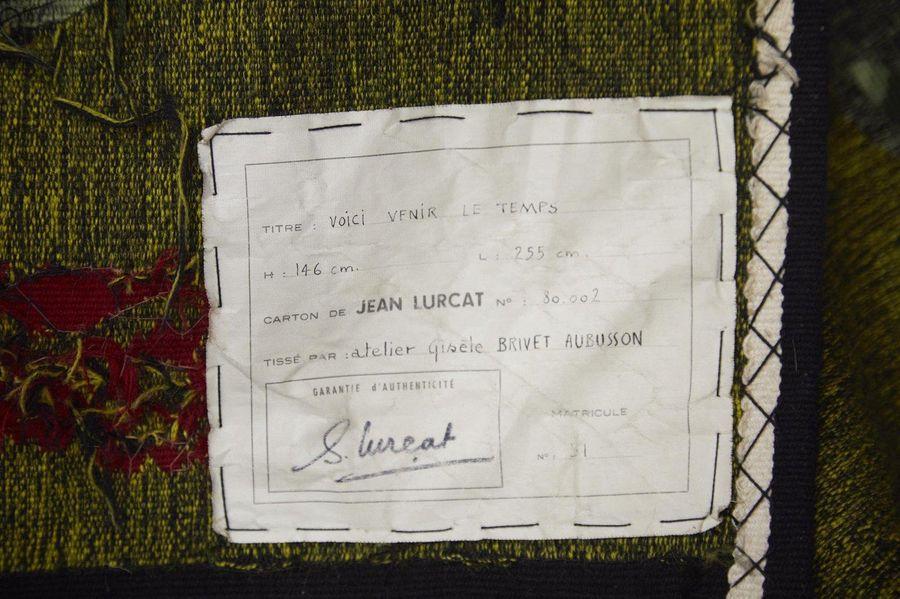 TITRE : VOICI VENIR LE TEMPS
H : 146 cm. L : 255 cm.
CARTON DE JEAN LURCAT N° : 80.002
TISSÉ PAR : atelier Gisèle BRIVET AUBUSSON
GARANTIE d'AUTHENTICITÉ
S. Lurçat
MATRICULE
N°. 31